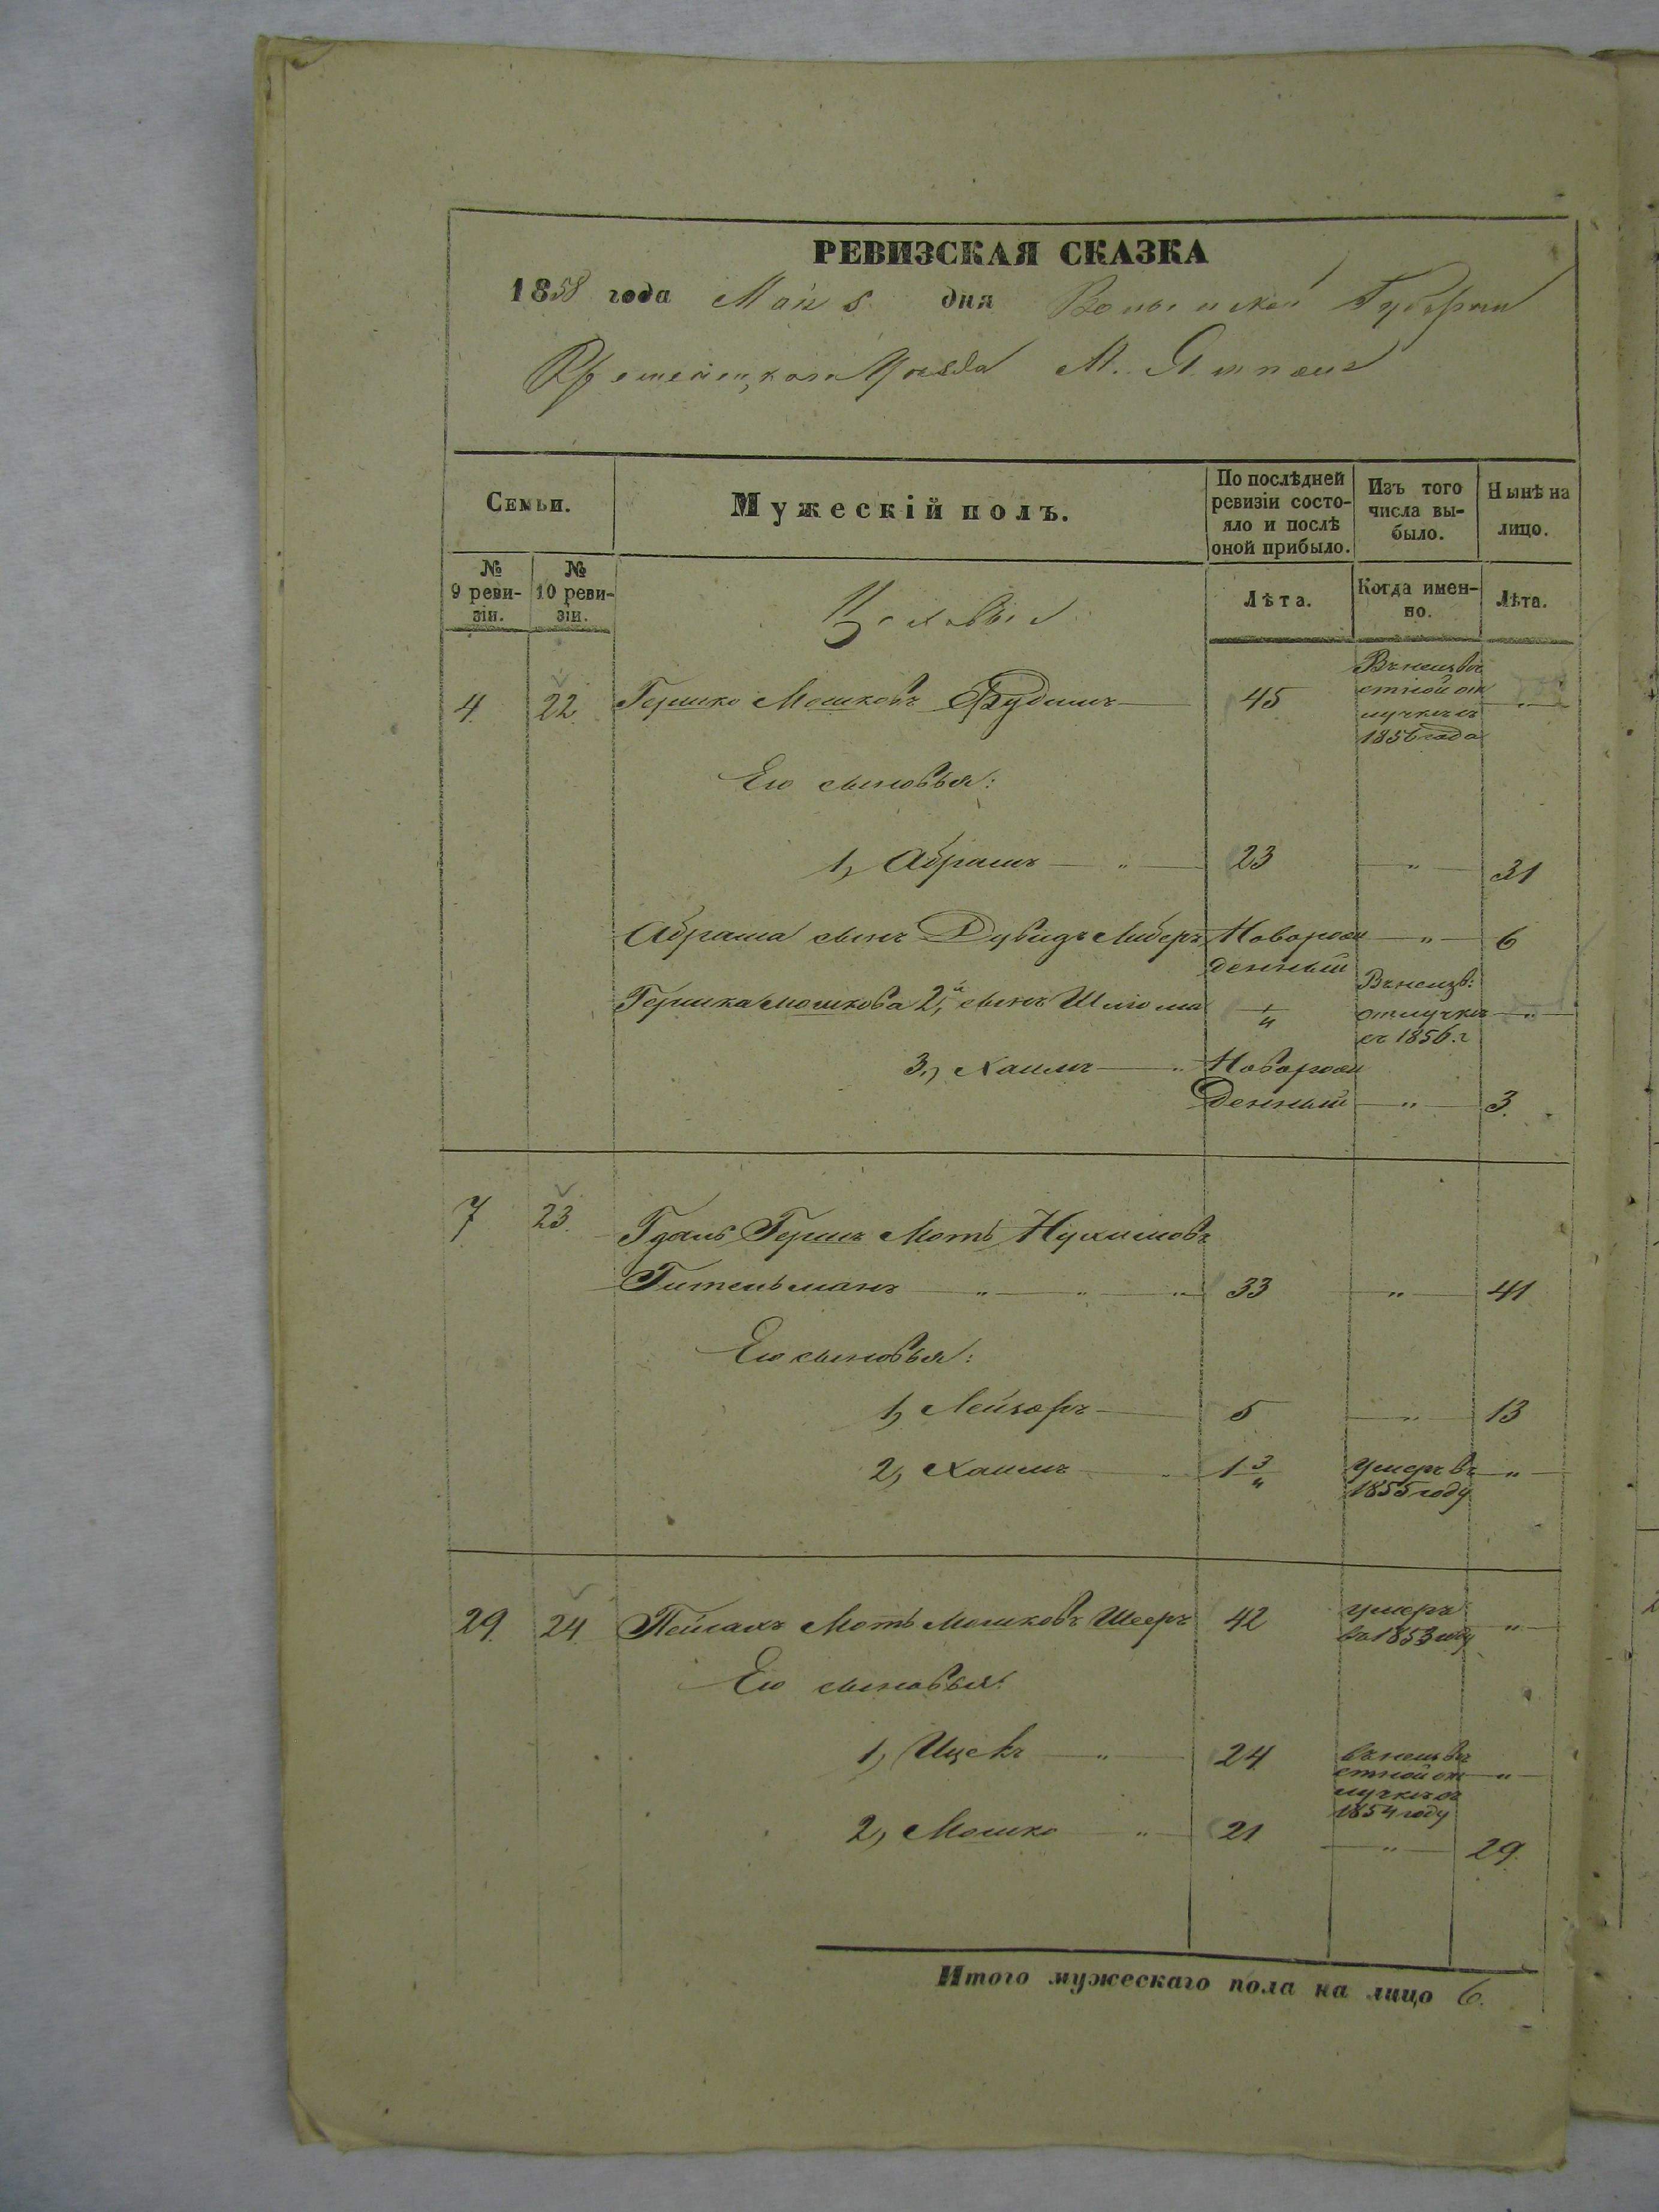 РЕВИЗСКАЯ СКАЗКА
1858 года Мая 8 дня Волынской Губернии
Кременецкаго Уезда М. Ямполя
Семьи.
Мужескій полъ.
По послѣдней ревизіи состо-
яло и послѣ
оной прибыло.
Изъ того
числа вы-
было.
Нынѣ на
лицо.
№
9 реви-
зіи.
№
10 реви-
зіи.
Лѣта.
Когда имен-
но.
Лѣта.
4 22 Гершко Мошковъ 45 Въ неизвѣ
стной от
лучкѣ съ
1856 года "
Его сыновья:
1, Абрамъ " 23 " 31
Абрама сынъ Дувидъ Либеръ Новорож
денный " 6
Гершка Мошкова 2й, сынъ Шлиома 1/4 Въ неизв:
отлучкѣ
съ 1856.г "
3, Хаимъ " Новорож
денный " 3.
7 23. Гдаль Гершъ Мотъ Нухимовъ
Гительманъ " " " 33 " 41
Его сыновья:
1, Лейзоръ 5 " 13
2, Хаимъ 1 3/4 Умеръ въ
1855 году "
29. 24. Пейсахъ Мотъ Мошковъ Шееръ 42 умеръ
въ 1853 году "
Его сыновья:
1, Ицекъ " 24 въ неизвѣ
стной от
лучкѣ съ
1854 году "
2, Мошко " 21 " 29.
Итого мужескаго пола на лицо 6.